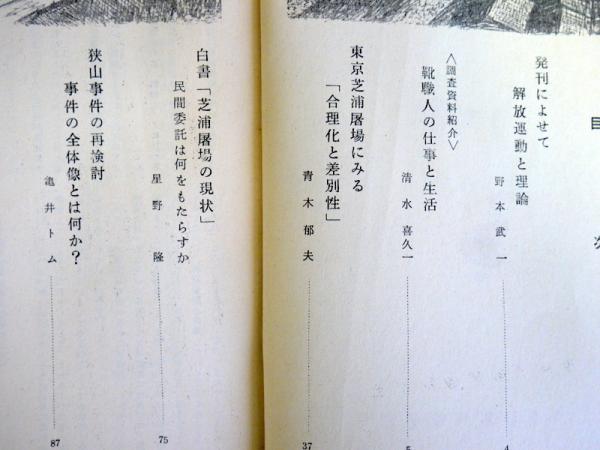 目次
発刊によせて
解放運動と理論
野本武一
4
〈調査資料紹介〉
靴職人の仕事と生活
清水喜久一
5
東京芝浦屠場にみる
「合理化と差別性」
青木郁夫
37
白書「芝浦屠場の現状」
民間委託は何をもたらすか
星野隆
75
狭山事件の再検討
事件の全体像とは何か?
亀井トム
87